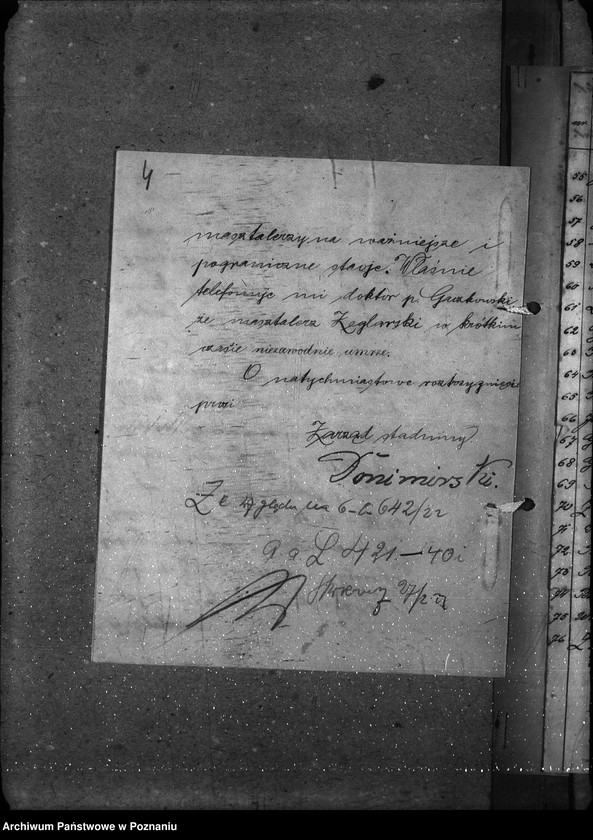 4
masztalerzy na ważniejsze i
pograniczne stacje. Właśnie
telefonuje mi doktor p. Guzkowski
że masztalerz Żeglarski w krótkim
czasie niezawodnie umrze.
O natychmiastowe rozstrzygnięcie
prosi
Zarząd stadniny
Donimirski.
Ze względu na 6-642/22
a a L 421.-40i
27/2 22
55
56
57
58
59
60
61
62
63
64
65
66
67
68
69
70
71
72
73
74
75
76
Archiwum Państwowe w Poznaniu